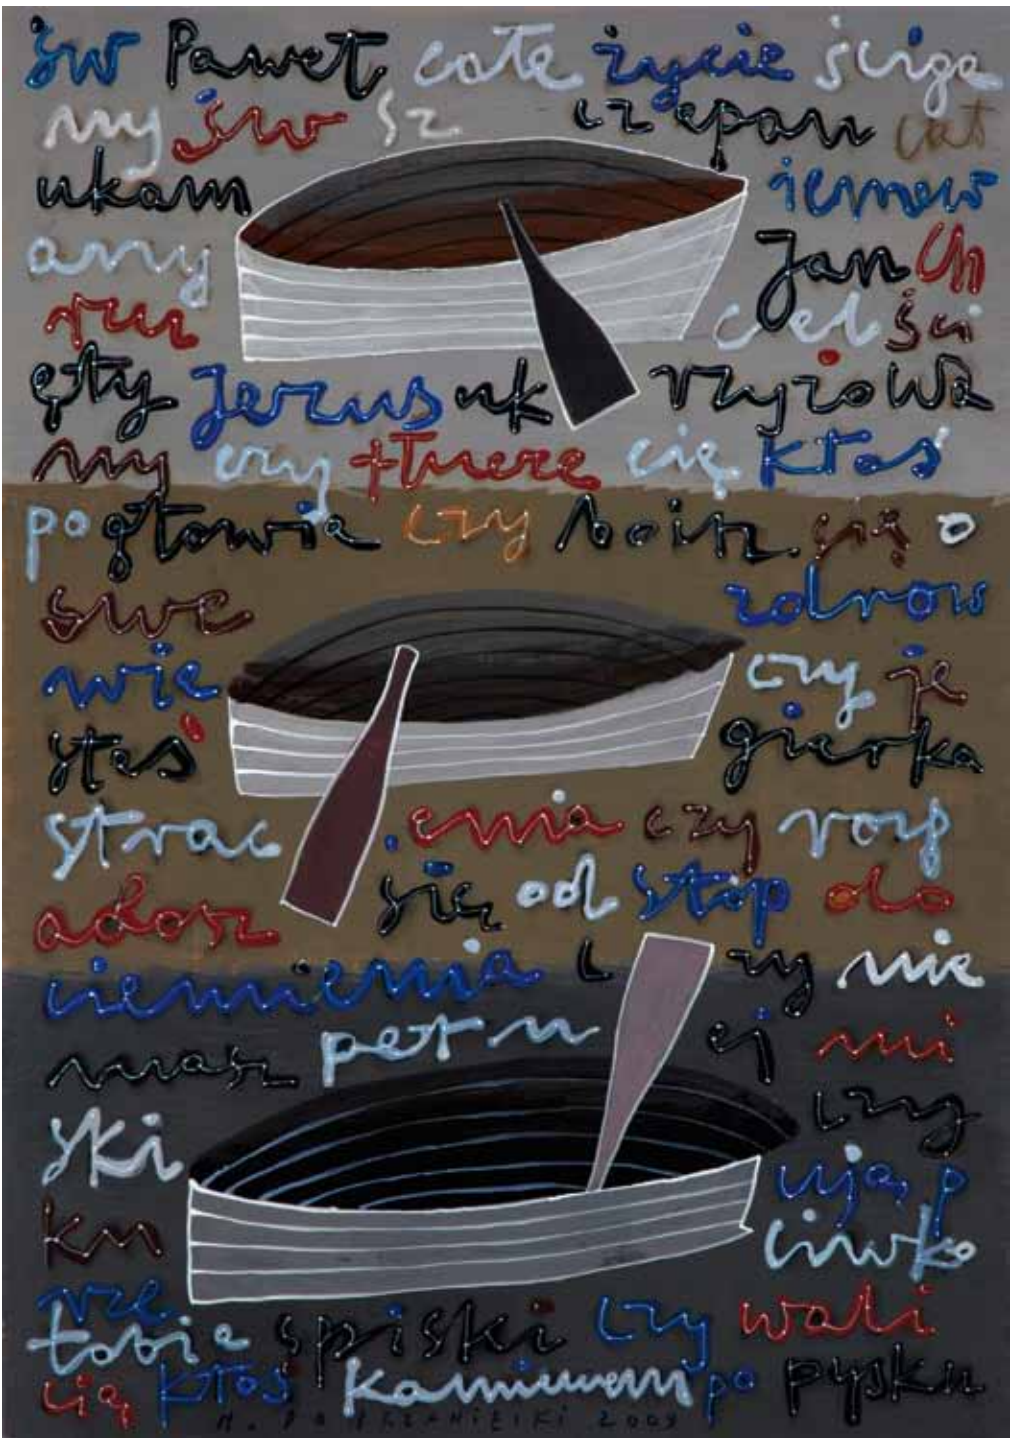 św Paweł całe życie ściga
ny św sz czepan cał
ukam ienow
any Jan Ch
rzci ciel ści
ęty Jezus uk rzyżowa
ny czy tłucze cię ktoś
po głowie czy boisz się o
swe zdrow
wie czy je
steś gierka
strac enia czy rozp
adasz się od stóp do
ciemienia czy nie
masz pełn ej mi
ski czy
kn ują p
rze ciwko
tobie spiski czy wali
cię ktoś kamieniem po pysku
2009